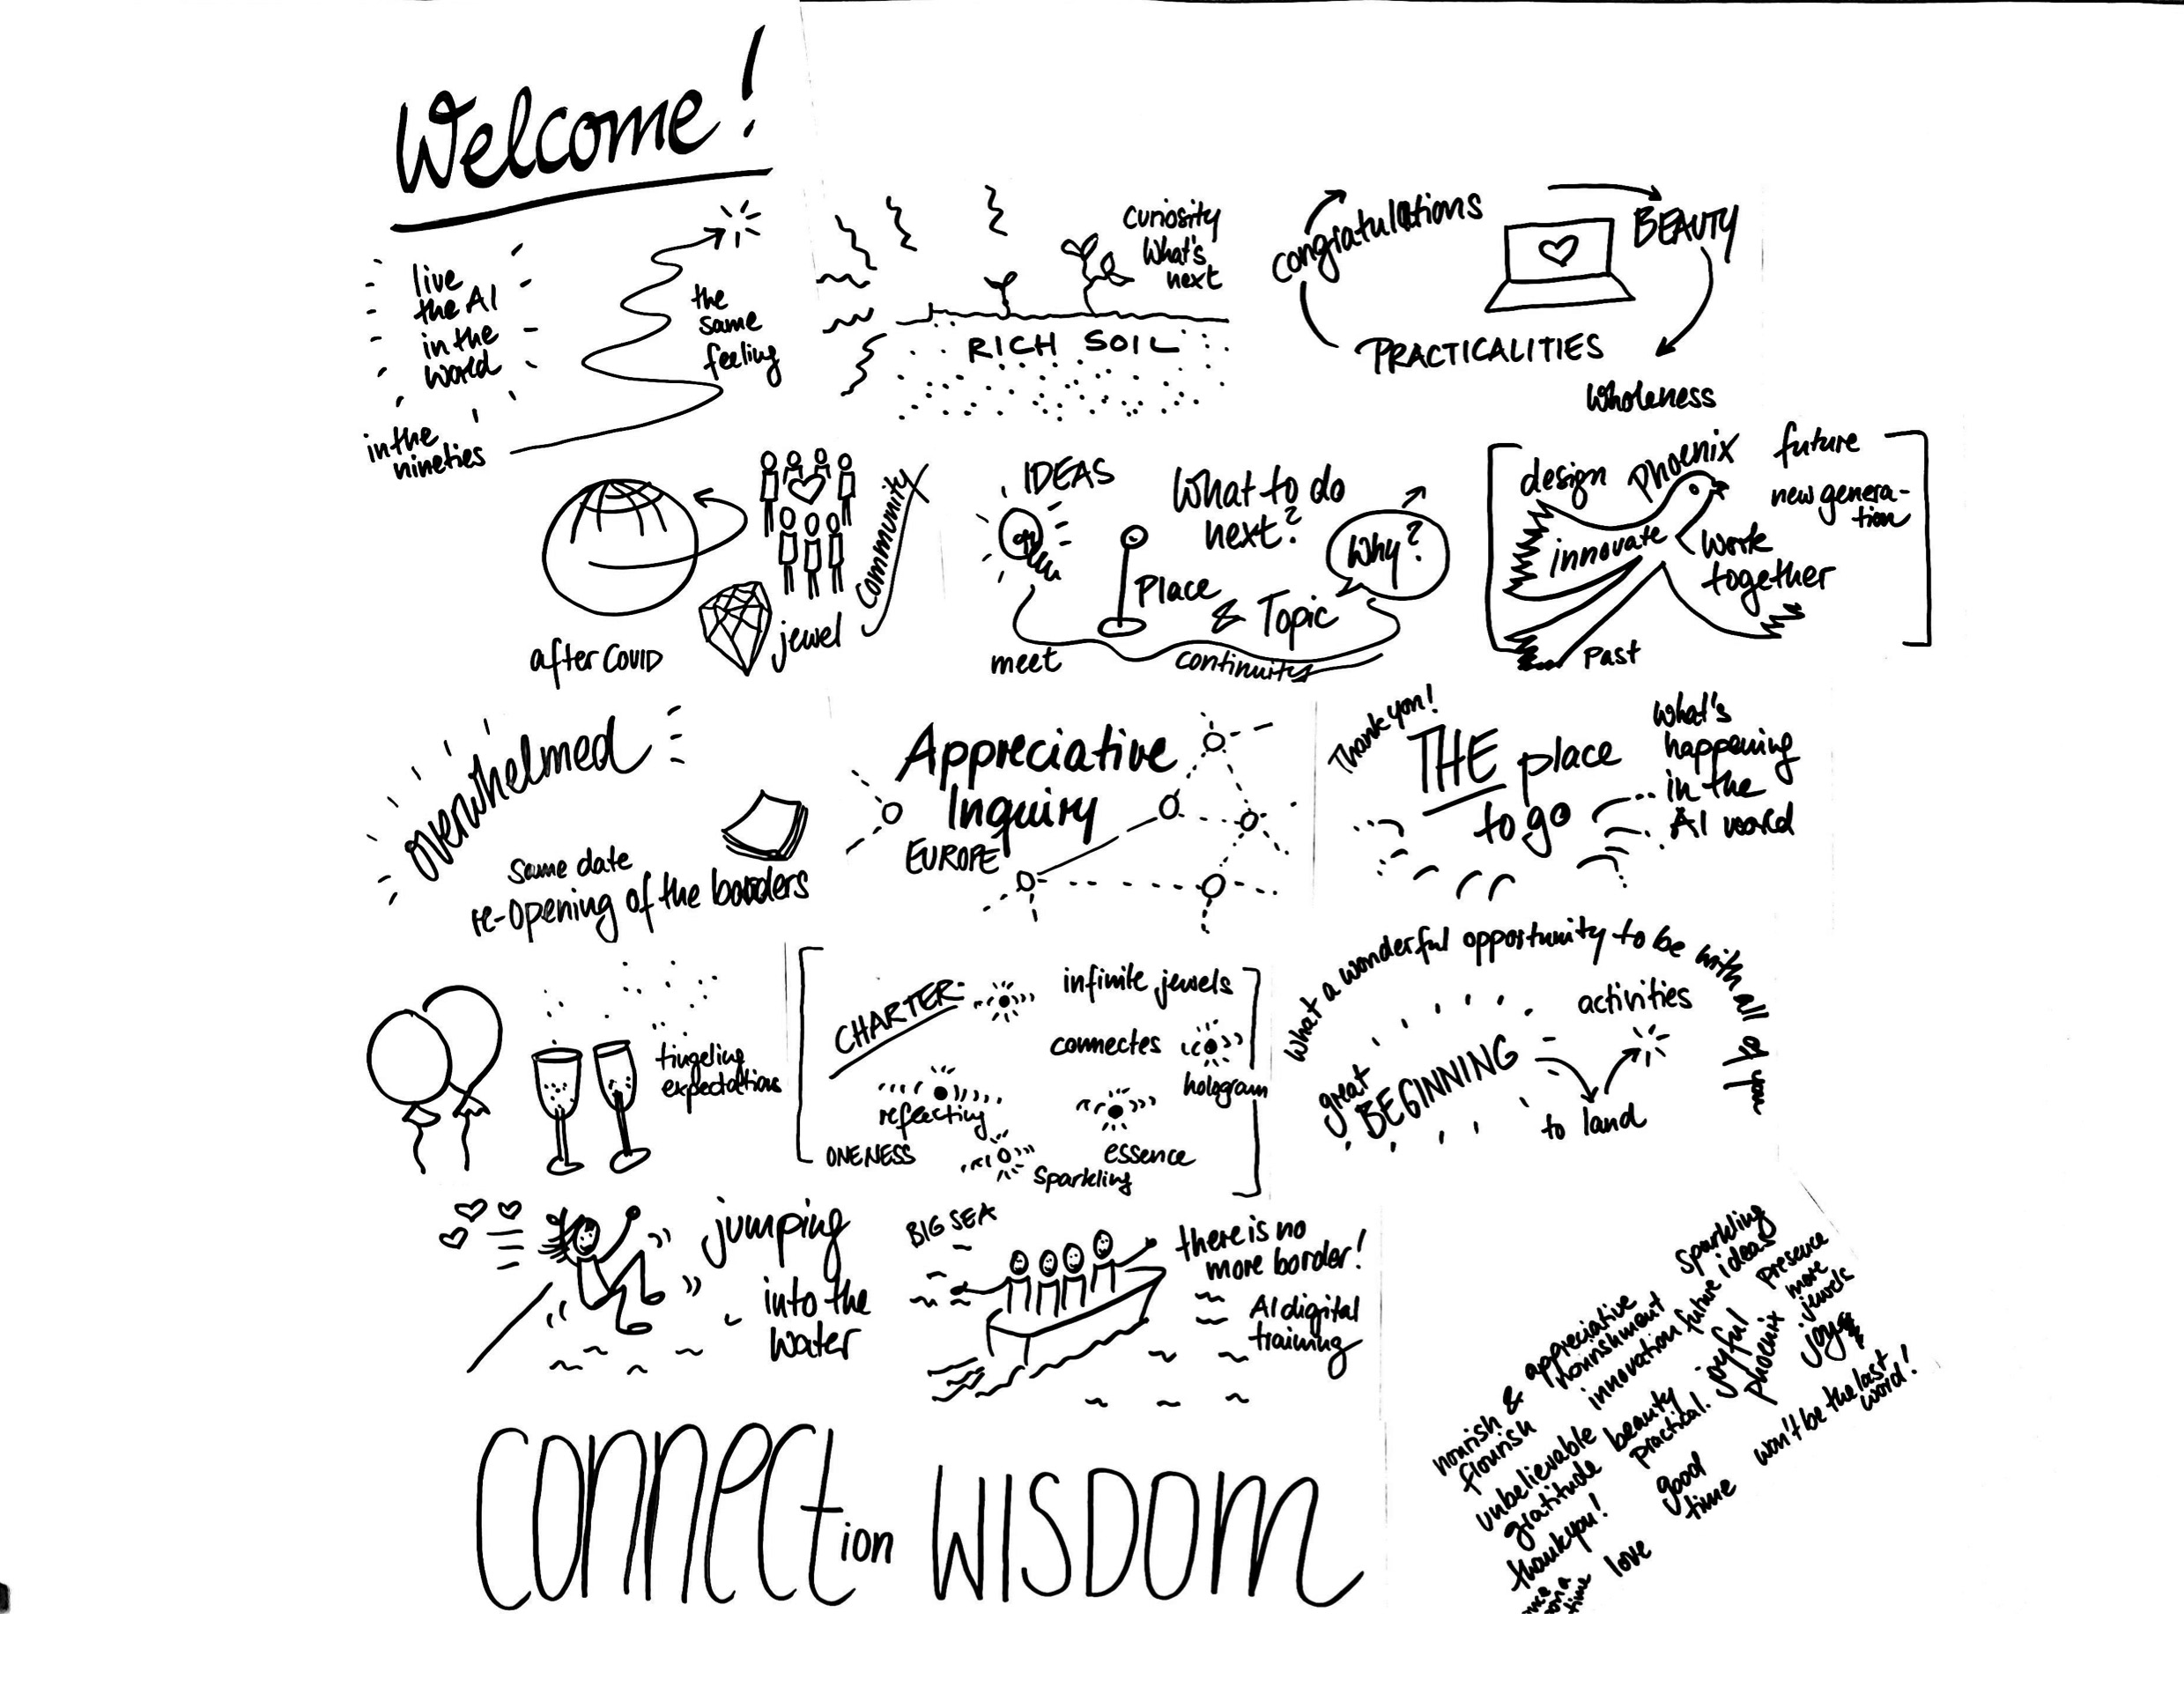 Welcome!
live
the AI
in the
world
in the
nineties
the
same
feeling
curiosity
What's
next
RICH SOIL
congratulations
BEAUTY
PRACTICALITIES
Wholeness
after COVID
jewel
community
IDEAS
What to do
next?
Why?
Place
& Topic
meet
continuity
design
Phoenix
future
new genera-
tion
innovate
Work
together
Past
overwhelmed
Same date
re-opening of the borders
Appreciative
Inquiry
EUROPE
Thank you!
THE place
to go
What's
happening
in the
AI world
tingeling
expectations
CHARTER:
infinite jewels
connectes
hologram
reflecting
ONENESS
essence
Sparkling
What a wonderful opportunity to be with all of you
great
BEGINNING
activities
to land
jumping
into the
water
BIG SEA
there is no
more border!
AI digital
training
nourish &
flourish
appreciative
nourishment
innovation future ideas
sparkling
presence
more
jewels
unbelievable
gratitude
beauty
practical.
joyful
phoenix
joy
thank you!
love
good
time
won't be the last
word!
time
CONNECtion WISDOM